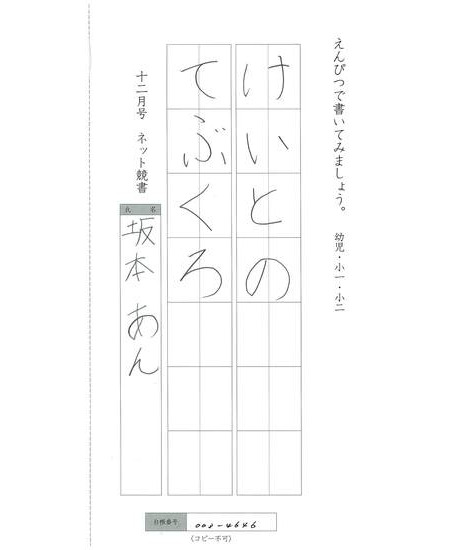 えんぴつで書いてみましょう。 幼児・小一・小二
けいとの
てぶくろ
十二月号 ネット競書
氏名
坂本 あん
台帳番号 002-4646
(コピー不可)